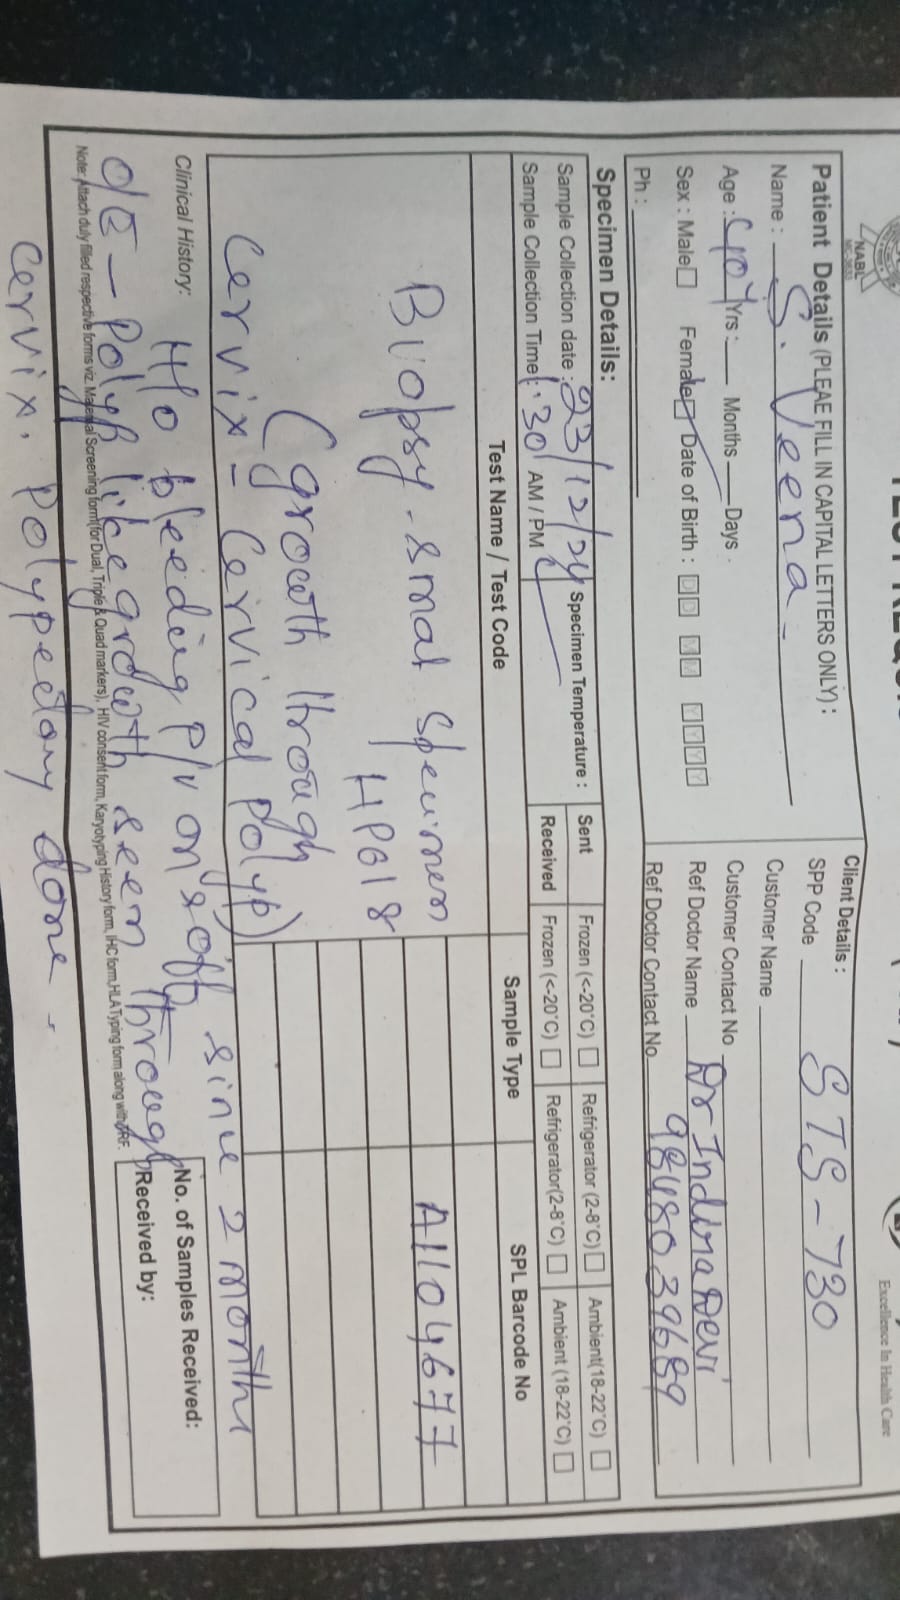 NABL
Excellence In Health Care
Patient Details (PLEAE FILL IN CAPITAL LETTERS ONLY) :
Name : S. Veena
Age : 40Y Yrs : Months Days
Sex : Male Female Date of Birth : D D M M Y Y Y Y
Ph :
Client Details :
SPP Code STS-730
Customer Name
Customer Contact No
Ref Doctor Name Dr Indira Devi
Ref Doctor Contact No 9848039689
Specimen Details:
Sample Collection date : 23/12/24
Sample Collection Time : 1:30 AM / PM
Specimen Temperature :
Sent Frozen (<-20°C) Refrigerator (2-8°C) Ambient(18-22°C)
Received Frozen (<-20°C) Refrigerator(2-8°C) Ambient (18-22°C)
Test Name / Test Code Sample Type SPL Barcode No
Biopsy - small specimen A1104677
HP018
(growth through
cervix - cervical polyp)
Clinical History: H/o bleeding p/v on & off since 2 months
O/E - Polyp like growth seen through
Note: Attach duly filled respective forms viz. Maternal Screening form(for Dual, Triple & Quad markers), HIV consent form, Karyotyping History form, IHC form, HLA Typing form along with TRF.
cervix. Polypectomy done.
No. of Samples Received:
Received by: